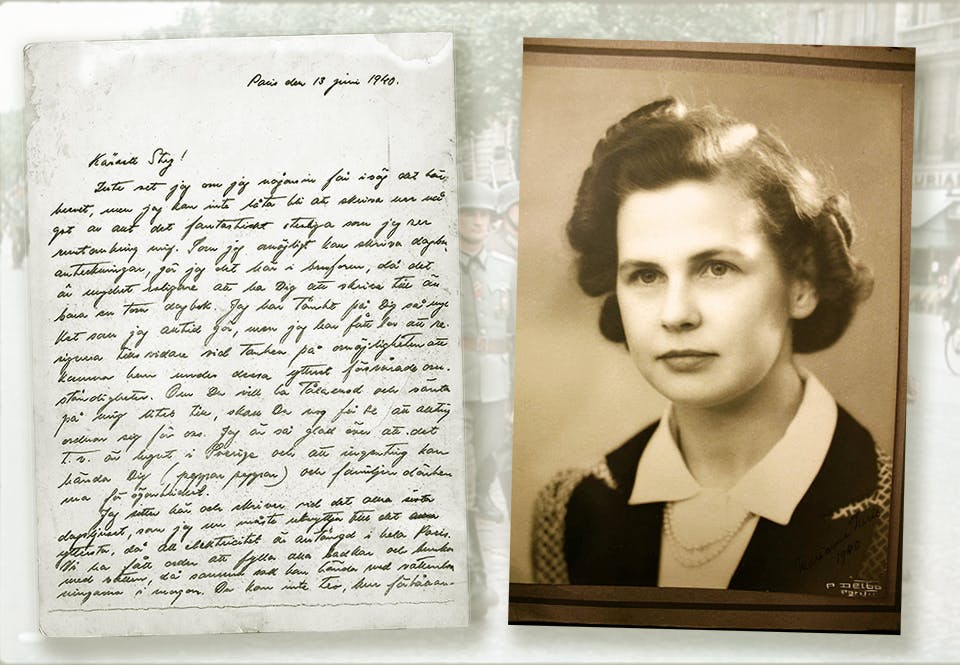 Paris den 13 juni 1940.
Käraste Stig!
Inte vet jag om jag någonsin får iväg det här
brevet, men jag kan inte låta bli att skriva ner nå-
got av allt det fantastiskt som jag ser
runtomkring mig. Som jag omöjligt kan skriva dagboks
anteckningar, gör jag det här i brevform, då det
är mycket roligare att ha Dig att skriva till än
bara en torr dagbok. Jag har tänkt på Dig så myc
ket som jag alltid gör, men jag har fått lov att re-
signera tills vidare vid tanken på omöjligheten att
komma hem under dessa ytterst försvårade om-
ständigheter. Om Du vill ha tålamod och vänta
på mig litet till, skall Du nog få se att allting
ordnar sig för oss. Jag är så glad över att det
t.v. är lugnt i Sverige och att ingenting kan
hända Dig (peppar peppar) och familjen därhem
ma för ögonblicket.
Jag sitter här och skriver vid det allra sista
dagsljuset, som jag nu måste utnyttja till det
yttersta, då all elektricitet är avstängd i hela Paris.
Vi ha fått order att fylla alla badkar och
med vatten, då samma sak kan hända med vattenled
ningarna i morgon. Du kan inte tro, hur
URIA
1940
P. Delbo
Paris